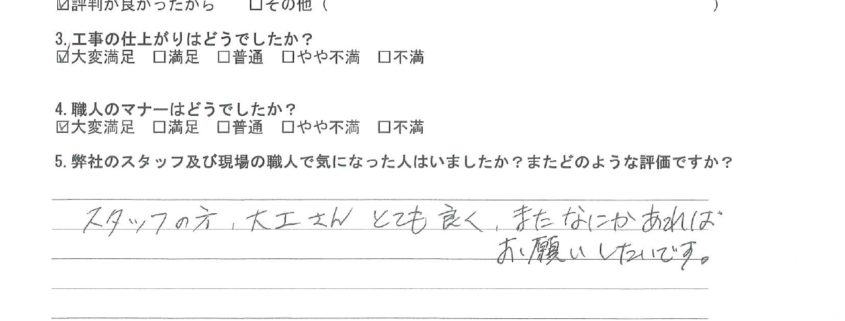 ☑評判が良かったから　☐その他（　　　）
3.工事の仕上がりはどうでしたか？
☑大変満足　☐満足　☐普通　☐やや不満　☐不満
4.職人のマナーはどうでしたか？
☑大変満足　☐満足　☐普通　☐やや不満　☐不満
5.弊社のスタッフ及び現場の職人で気になった人はいましたか？またどのような評価ですか？
スタッフの方、大工さん とても良く、またなにかあれば
お願いしたいです。